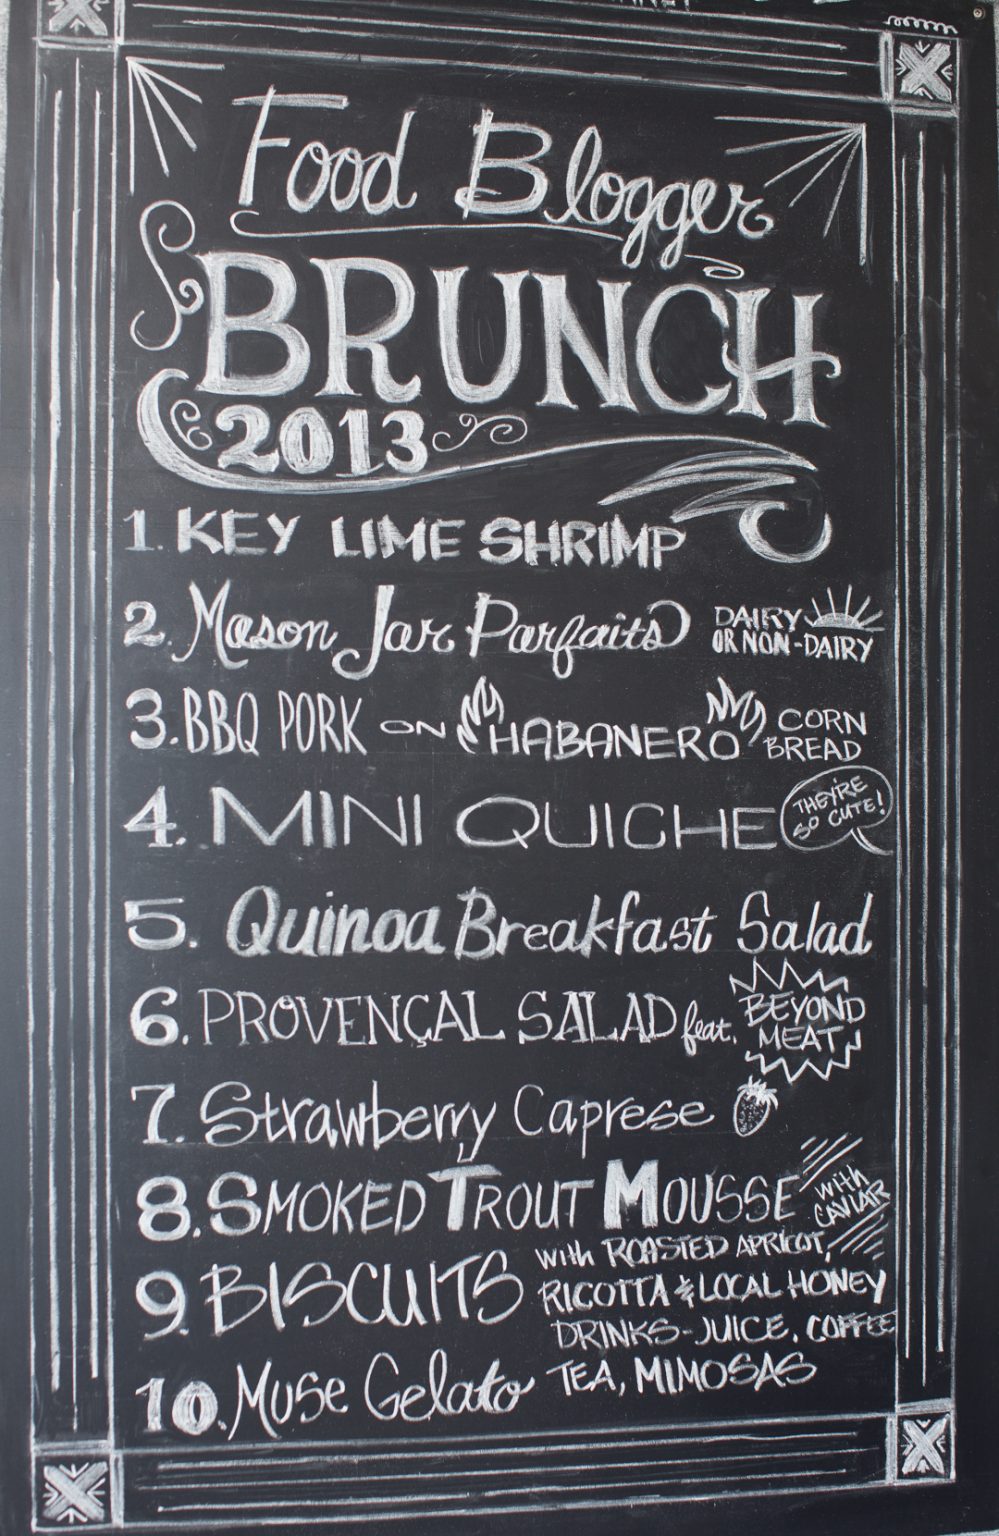 Food Blogger
BRUNCH
2013
1. KEY LIME SHRIMP
2. Mason Jar Parfaits DAIRY
OR NON-DAIRY
3. BBQ PORK ON HABANERO CORN
BREAD
4. MINI QUICHE THEY'RE
SO CUTE!
5. Quinoa Breakfast Salad
6. PROVENÇAL SALAD feat. BEYOND
MEAT
7. Strawberry Caprese
8. SMOKED TROUT MOUSSE with
CAVIAR
9. BISCUITS with ROASTED APRICOT,
RICOTTA & LOCAL HONEY
DRINKS-JUICE, COFFEE
TEA, MIMOSAS
10. Muse Gelato